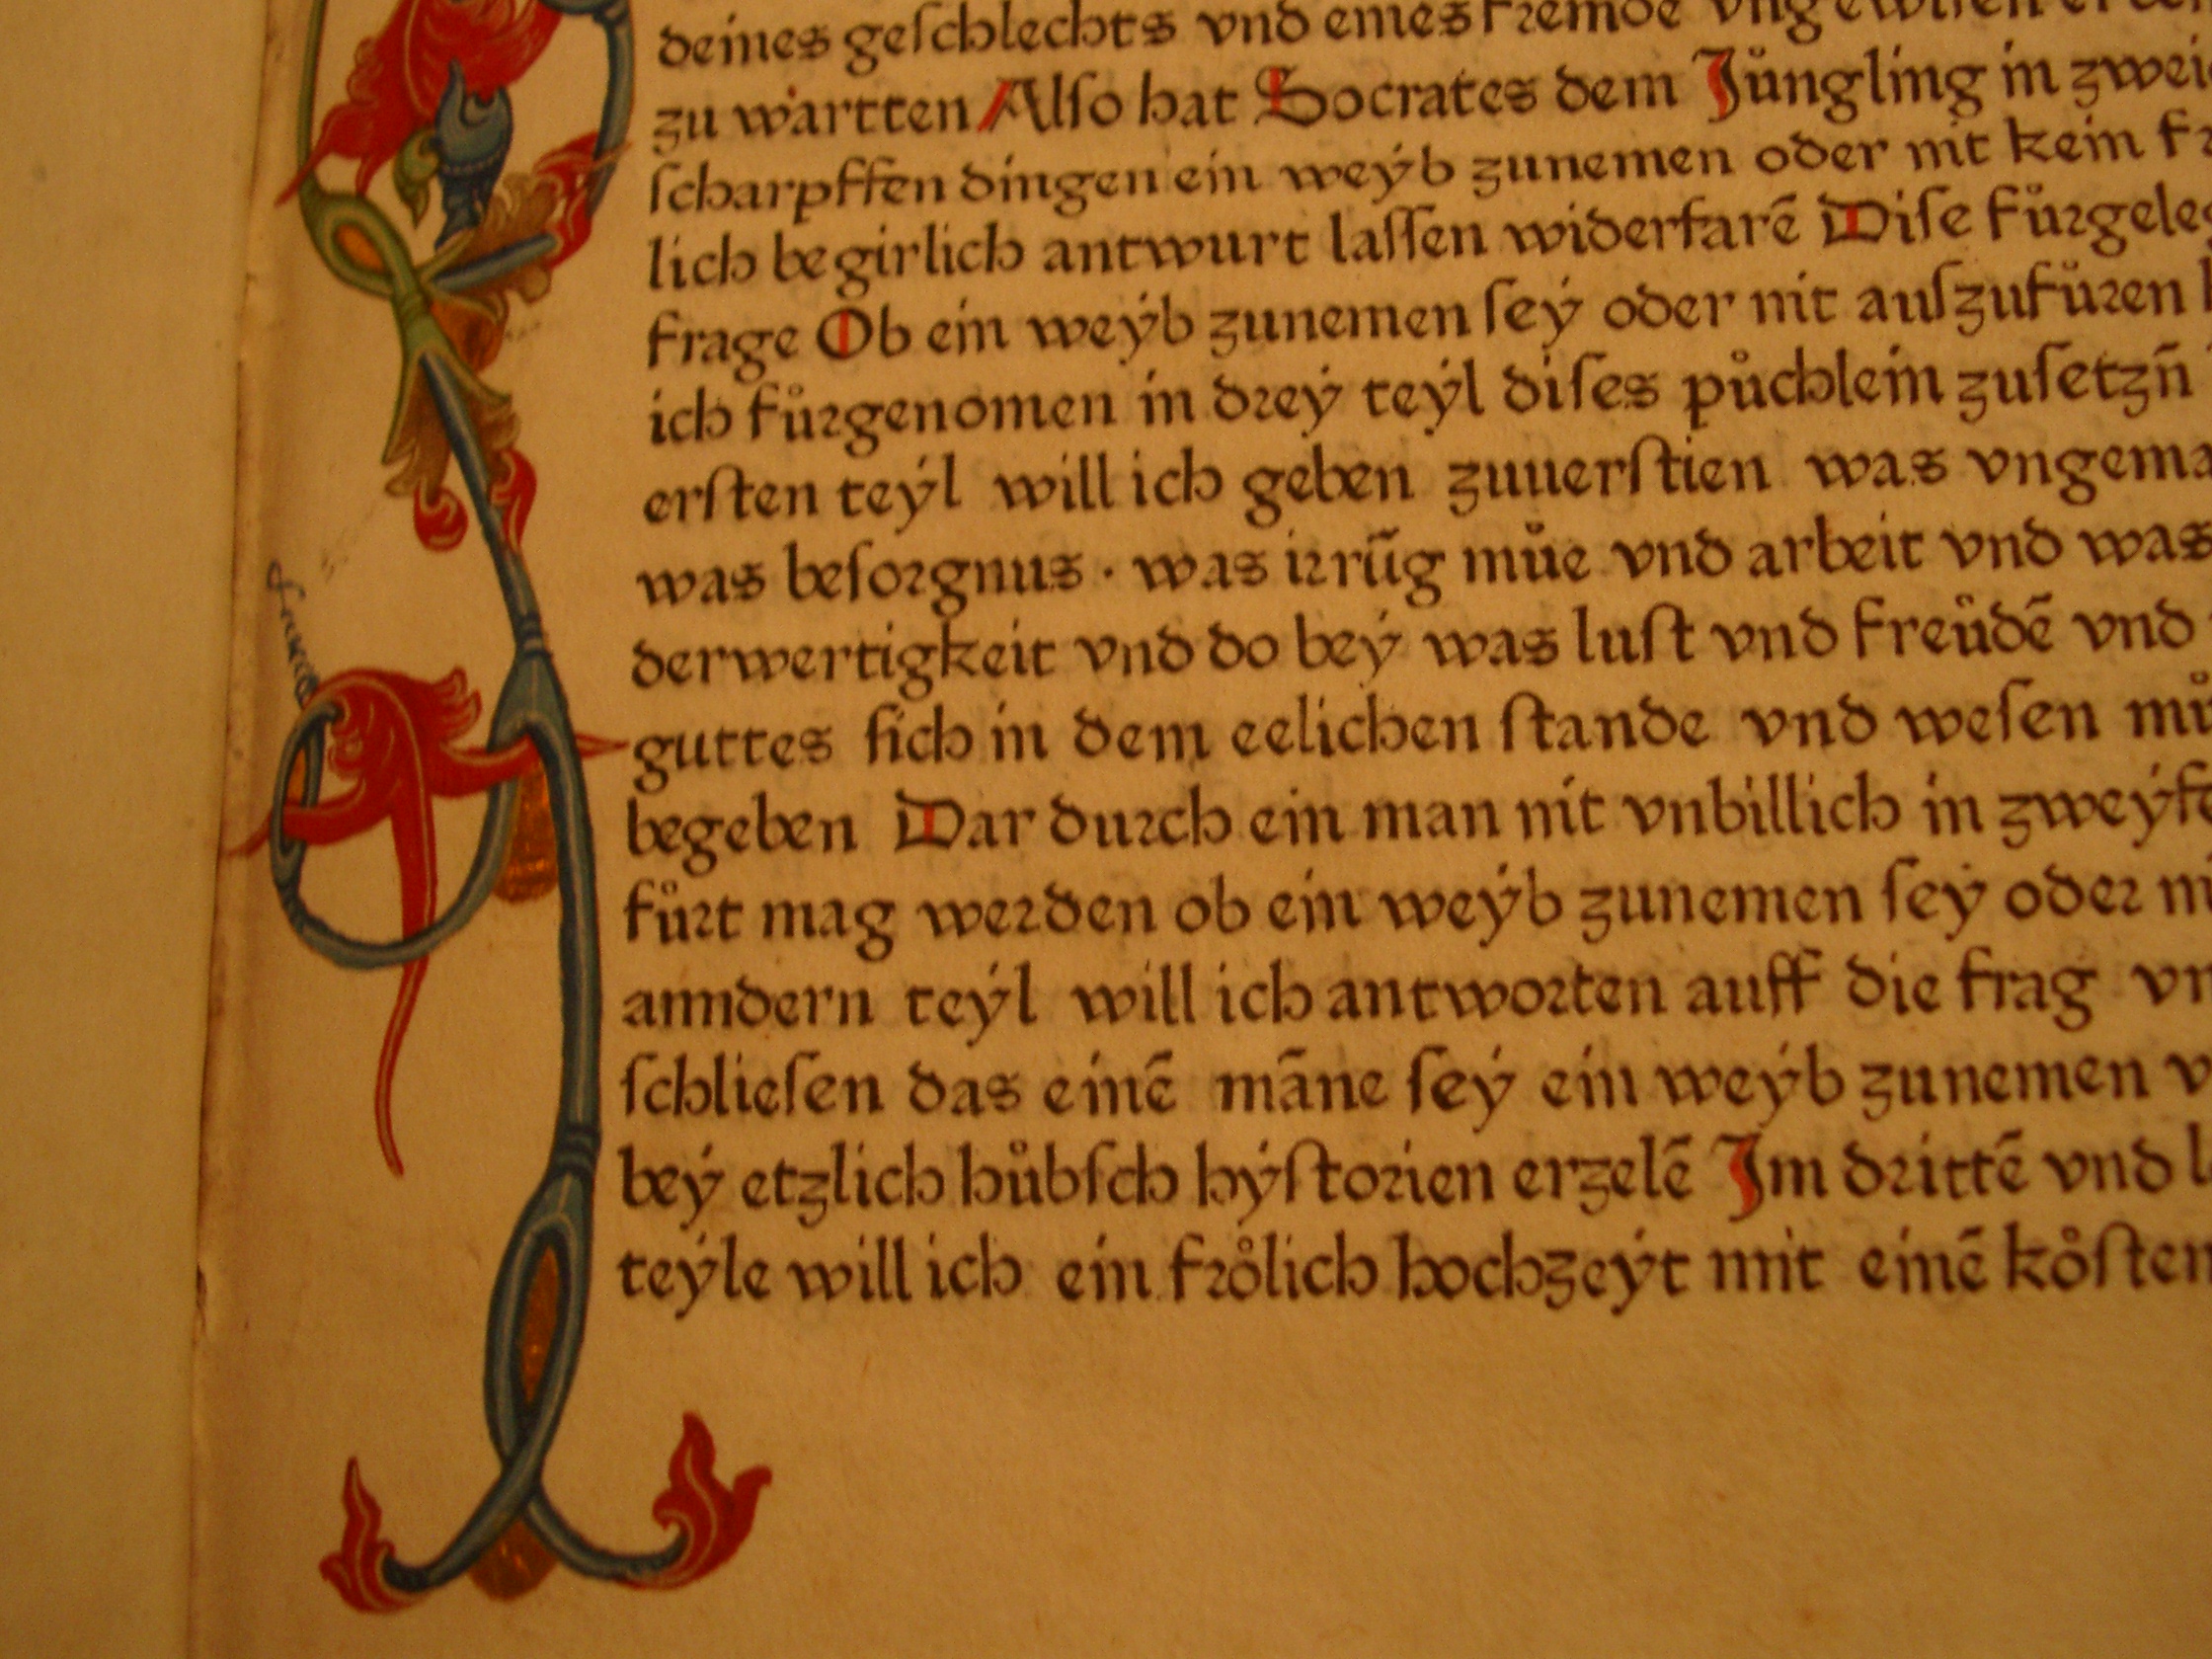 deines geſchlechts vnd eines fremde
zu wartten Alſo hat Socrates dem Jůngling in zwei
ſcharpffen dingen ein weyb zunemen oder nit kein
lich begirlich antwurt laſſen widerfarē Diſe fůrgeleg
frage Ob ein weyb zunemen ſey oder nit auſzufůren
ich fůrgenomen in drey teyl diſes půchlein zuſetzn̄
erſten teyl will ich geben zuuerſtien was vngema
was beſorgnus · was irrūg můe vnd arbeit vnd was
derwertigkeit vnd do bey was luſt vnd freůdē vnd
guttes ſich in dem eelichen ſtande vnd weſen mů
begeben Dar durch ein man nit vnbillich in zweyfe
fůrt mag werden ob ein weyb zunemen ſey oder ni
anndern teyl will ich antworten auff die frag vn
ſchlieſen das einē māne ſey ein weyb zunemen v
bey etzlich hůbſch hyſtorien erzelē Jm drittē vnd l
teyle will ich ein frőlich hochzeyt mit einē kőſten